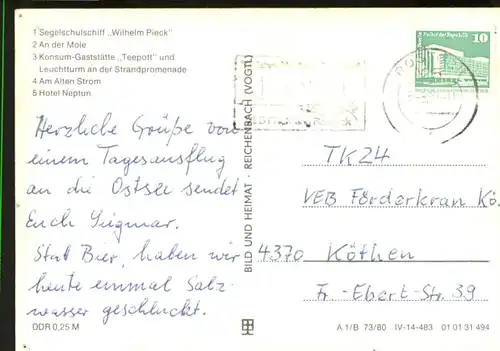 1 Segelschulschiff „Wilhelm Pieck"
2 An der Mole
3 Konsum-Gaststätte „Teepott" und
Leuchtturm an der Strandpromenade
4 Am Alten Strom
5 Hotel Neptun
Herzliche Grüße von
einem Tagesausflug
an die Ostsee sendet
Euch Siegmar.
Statt Bier, haben wir
heute einmal Salz-
wasser geschluckt.
DDR 0,25 M
BILD UND HEIMAT · REICHENBACH (VOGTL)
10
TK24
VEB Förderkran Kö.
4370 Köthen
Fr.-Ebert-Str. 39
A 1/B 73/80 IV-14-483 01 01 31 494